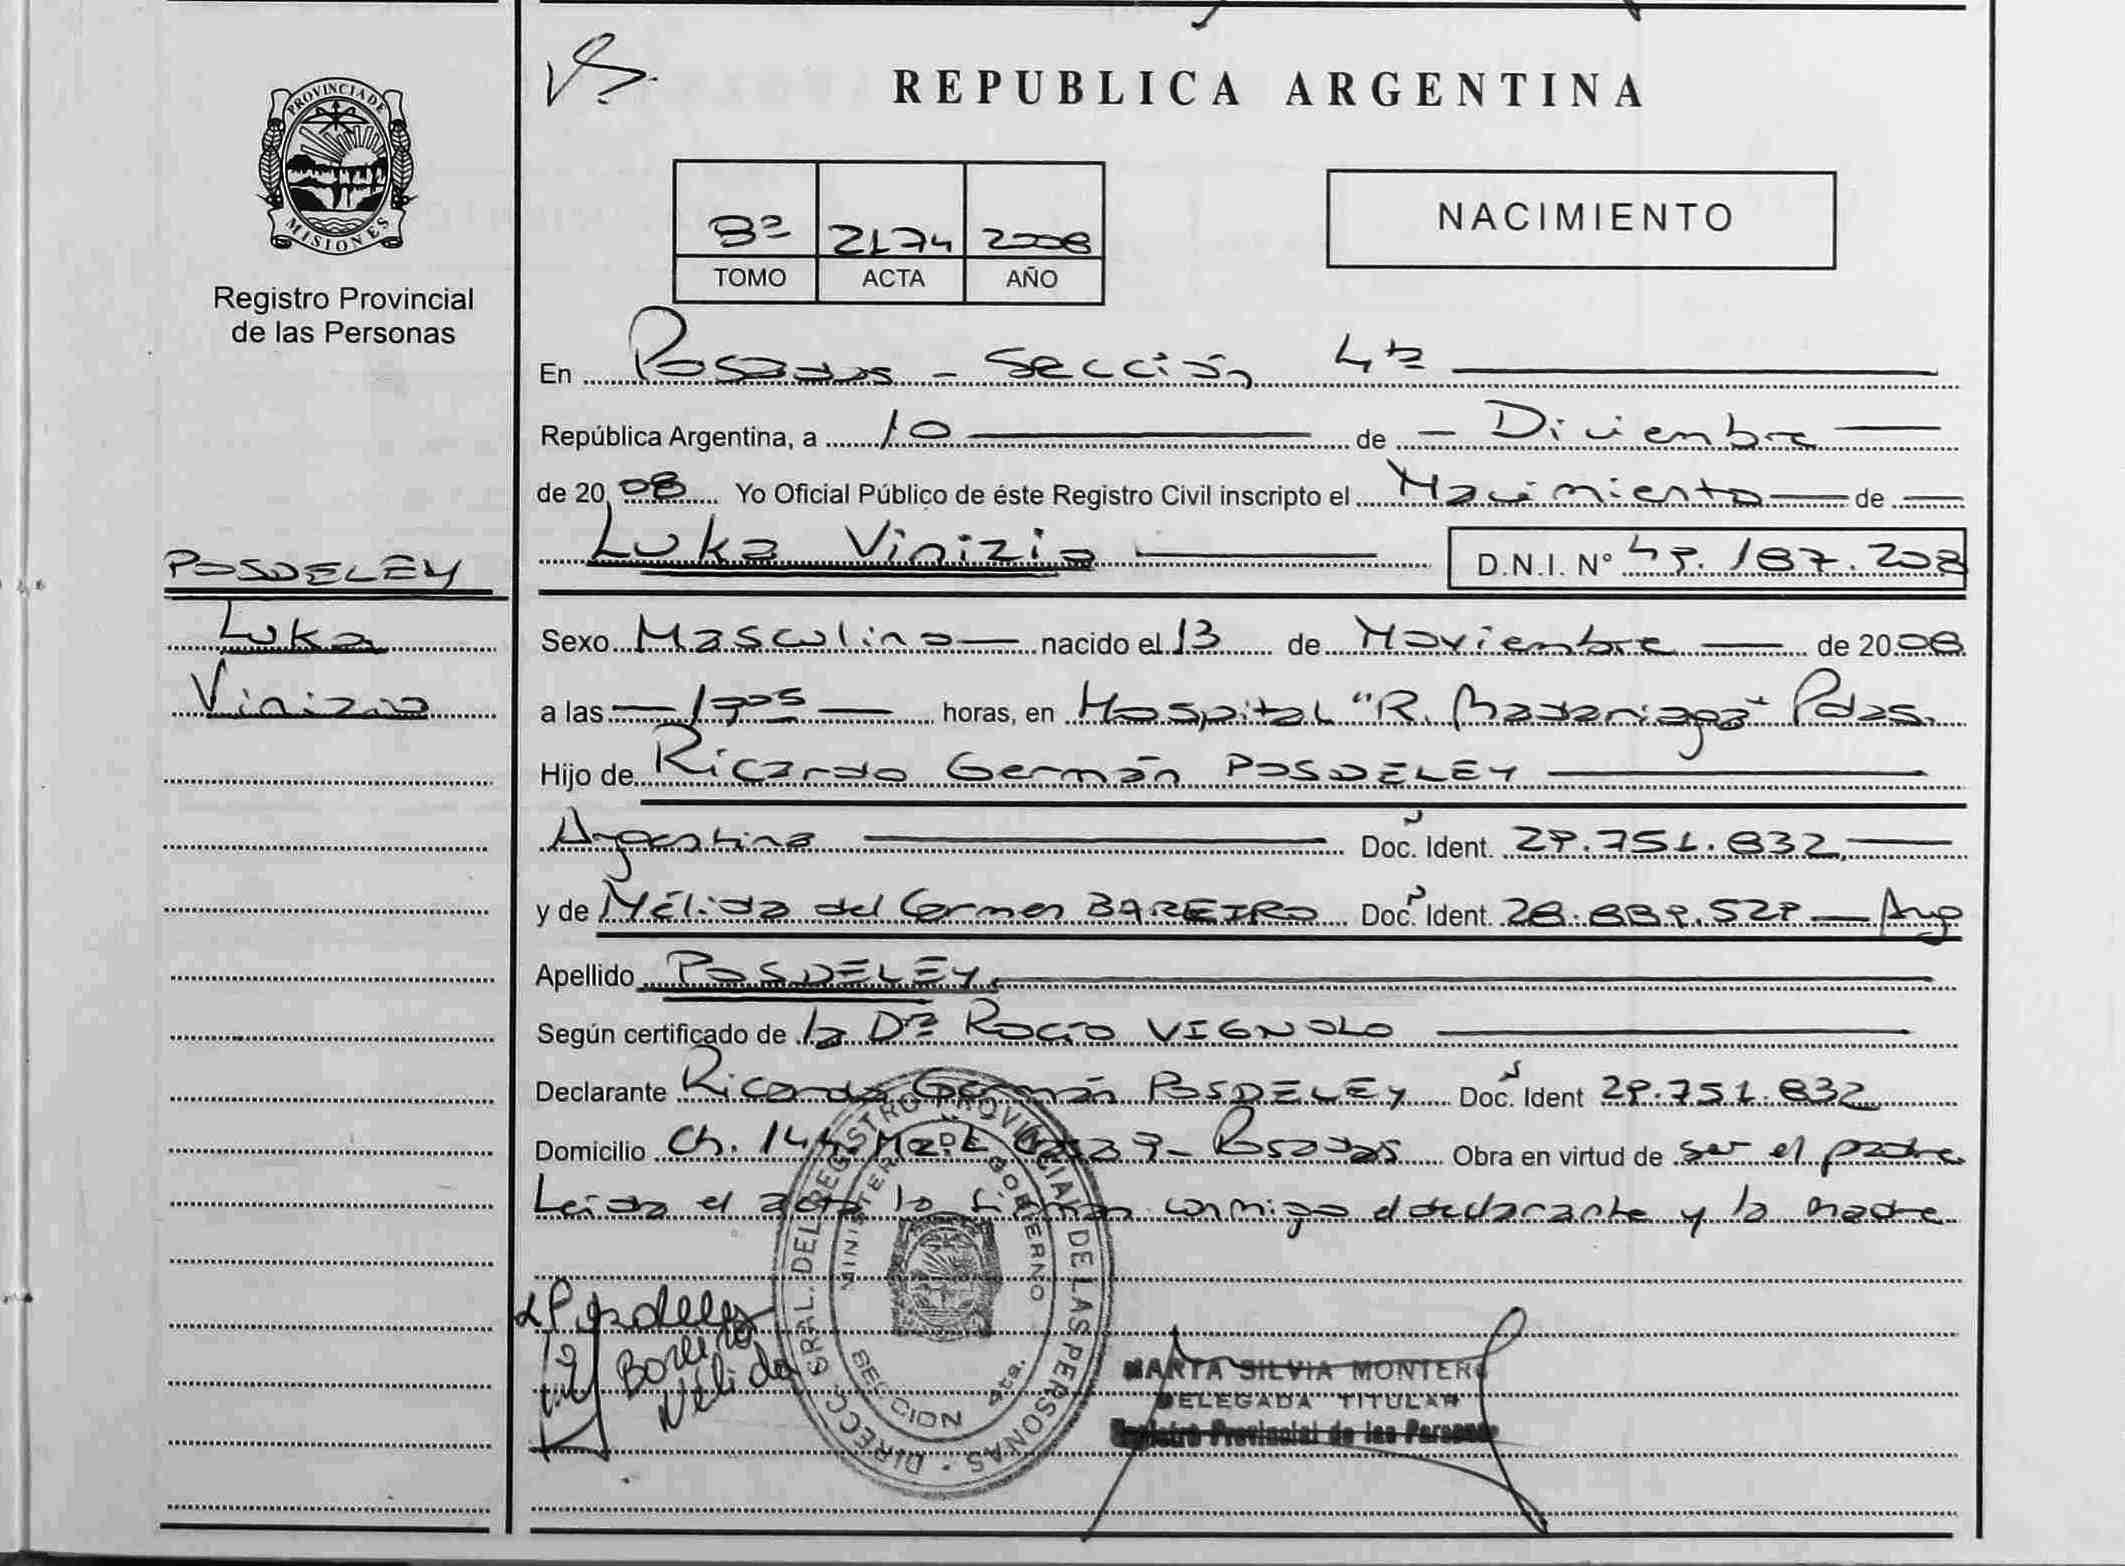 REPUBLICA ARGENTINA
PROVINCIA DE MISIONES
Registro Provincial
de las Personas
NACIMIENTO
2174 2008
TOMO ACTA AÑO
En Posadas - Sección 4ta
República Argentina, a 10 de - Diciembre
de 2008 Yo Oficial Público de éste Registro Civil inscripto el Nacimiento de
Luka Vinizio D.N.I. Nº 49.187.208
POSDELEY
Luka
Vinizio
Sexo Masculino nacido el 13 de Noviembre de 2008
a las horas, en Hospital "R. Madariaga" Pdas.
Hijo de Ricardo Germán POSDELEY
Argentina Doc. Ident. 29.751.832
y de Nélida del Carmen BAREIRO Doc. Ident. 28.889.529 Arg
Apellido POSDELEY
Según certificado de la Dra ROCÍO VIGNOLO
Declarante Ricardo Germán POSDELEY Doc. Ident 29.751.832
Domicilio Ch. 144 Casa 9 - Posadas Obra en virtud de ser el padre
Leída el acta la firman conmigo el declarante y la madre
Posdeley
Bareiro
Nélida
DIRECC. GRAL. DEL REGISTRO PROVINCIAL DE LAS PERSONAS
MINISTERIO DE GOBIERNO
SECCION 4ta.
MARTA SILVIA MONTERO
DELEGADA TITULAR
Registro Provincial de las Personas